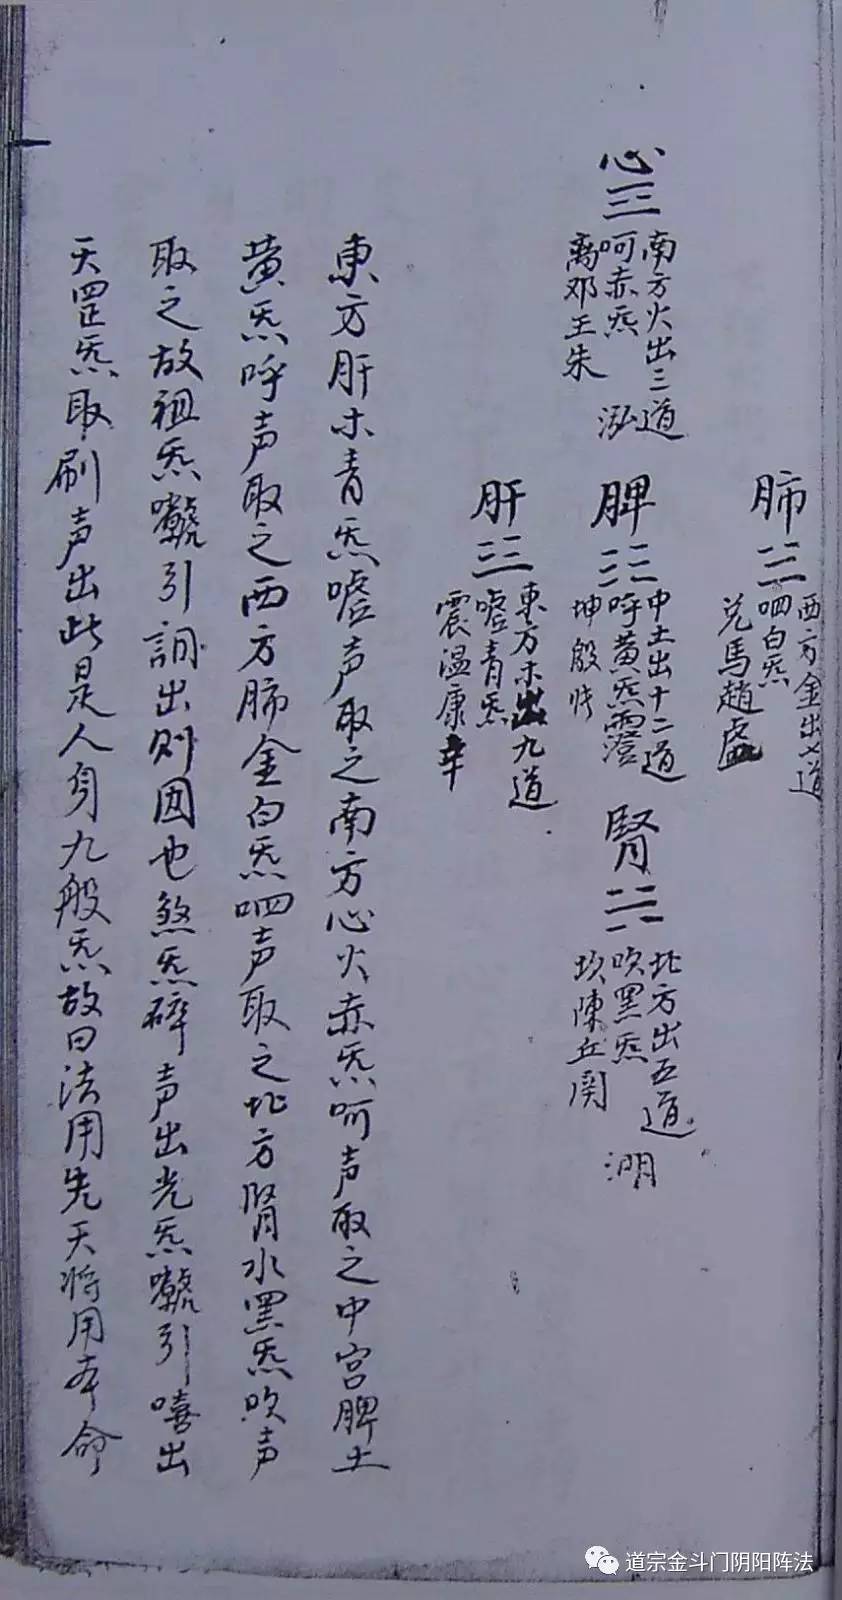 肺
西方金出七道
呬白炁
兑馬趙
心
南方火出三道
呵赤炁
离邓王朱
泓
脾
中土出十二道
呼黄炁霪
坤殷
腎
北方出五道
吹黑炁
坎陳丘関
渊
肝
東方木出九道
嘘青炁
震温康辛
東方肝木青炁嘘声取之南方心火赤炁呵声取之中宫脾土
黄炁呼声取之西方肺金白炁呬声取之北方腎水黑炁吹声
取之故祖炁引詞出则因也煞炁碎声出光炁引嘻出
天罡炁取刷声出此是人身九般炁故曰法用先天将用本命
道宗金斗门阴阳阵法